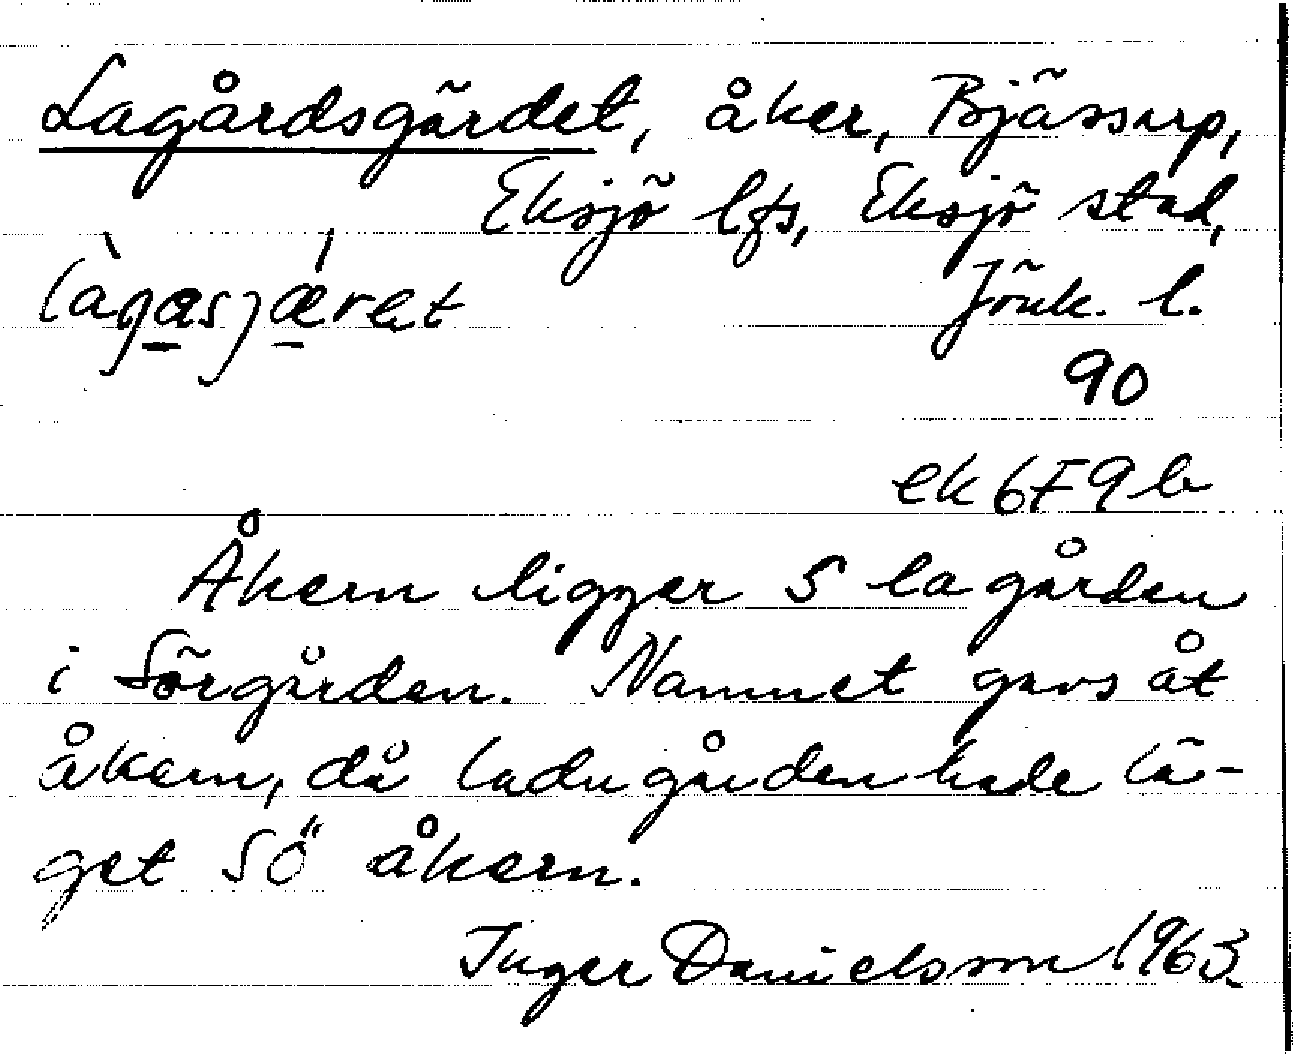 Lagårdsgärdet, åker, Bjässarp,
Eksjö lfs, Eksjö stad,
làgasjæ̀ret Jönk. l.
90
ek 6F9b
Åkern ligger S lagården
i Sörgården. Namnet gavs åt
åkern, då ladugården hade lä-
get SÖ åkern.
Inger Danielsson 1963.